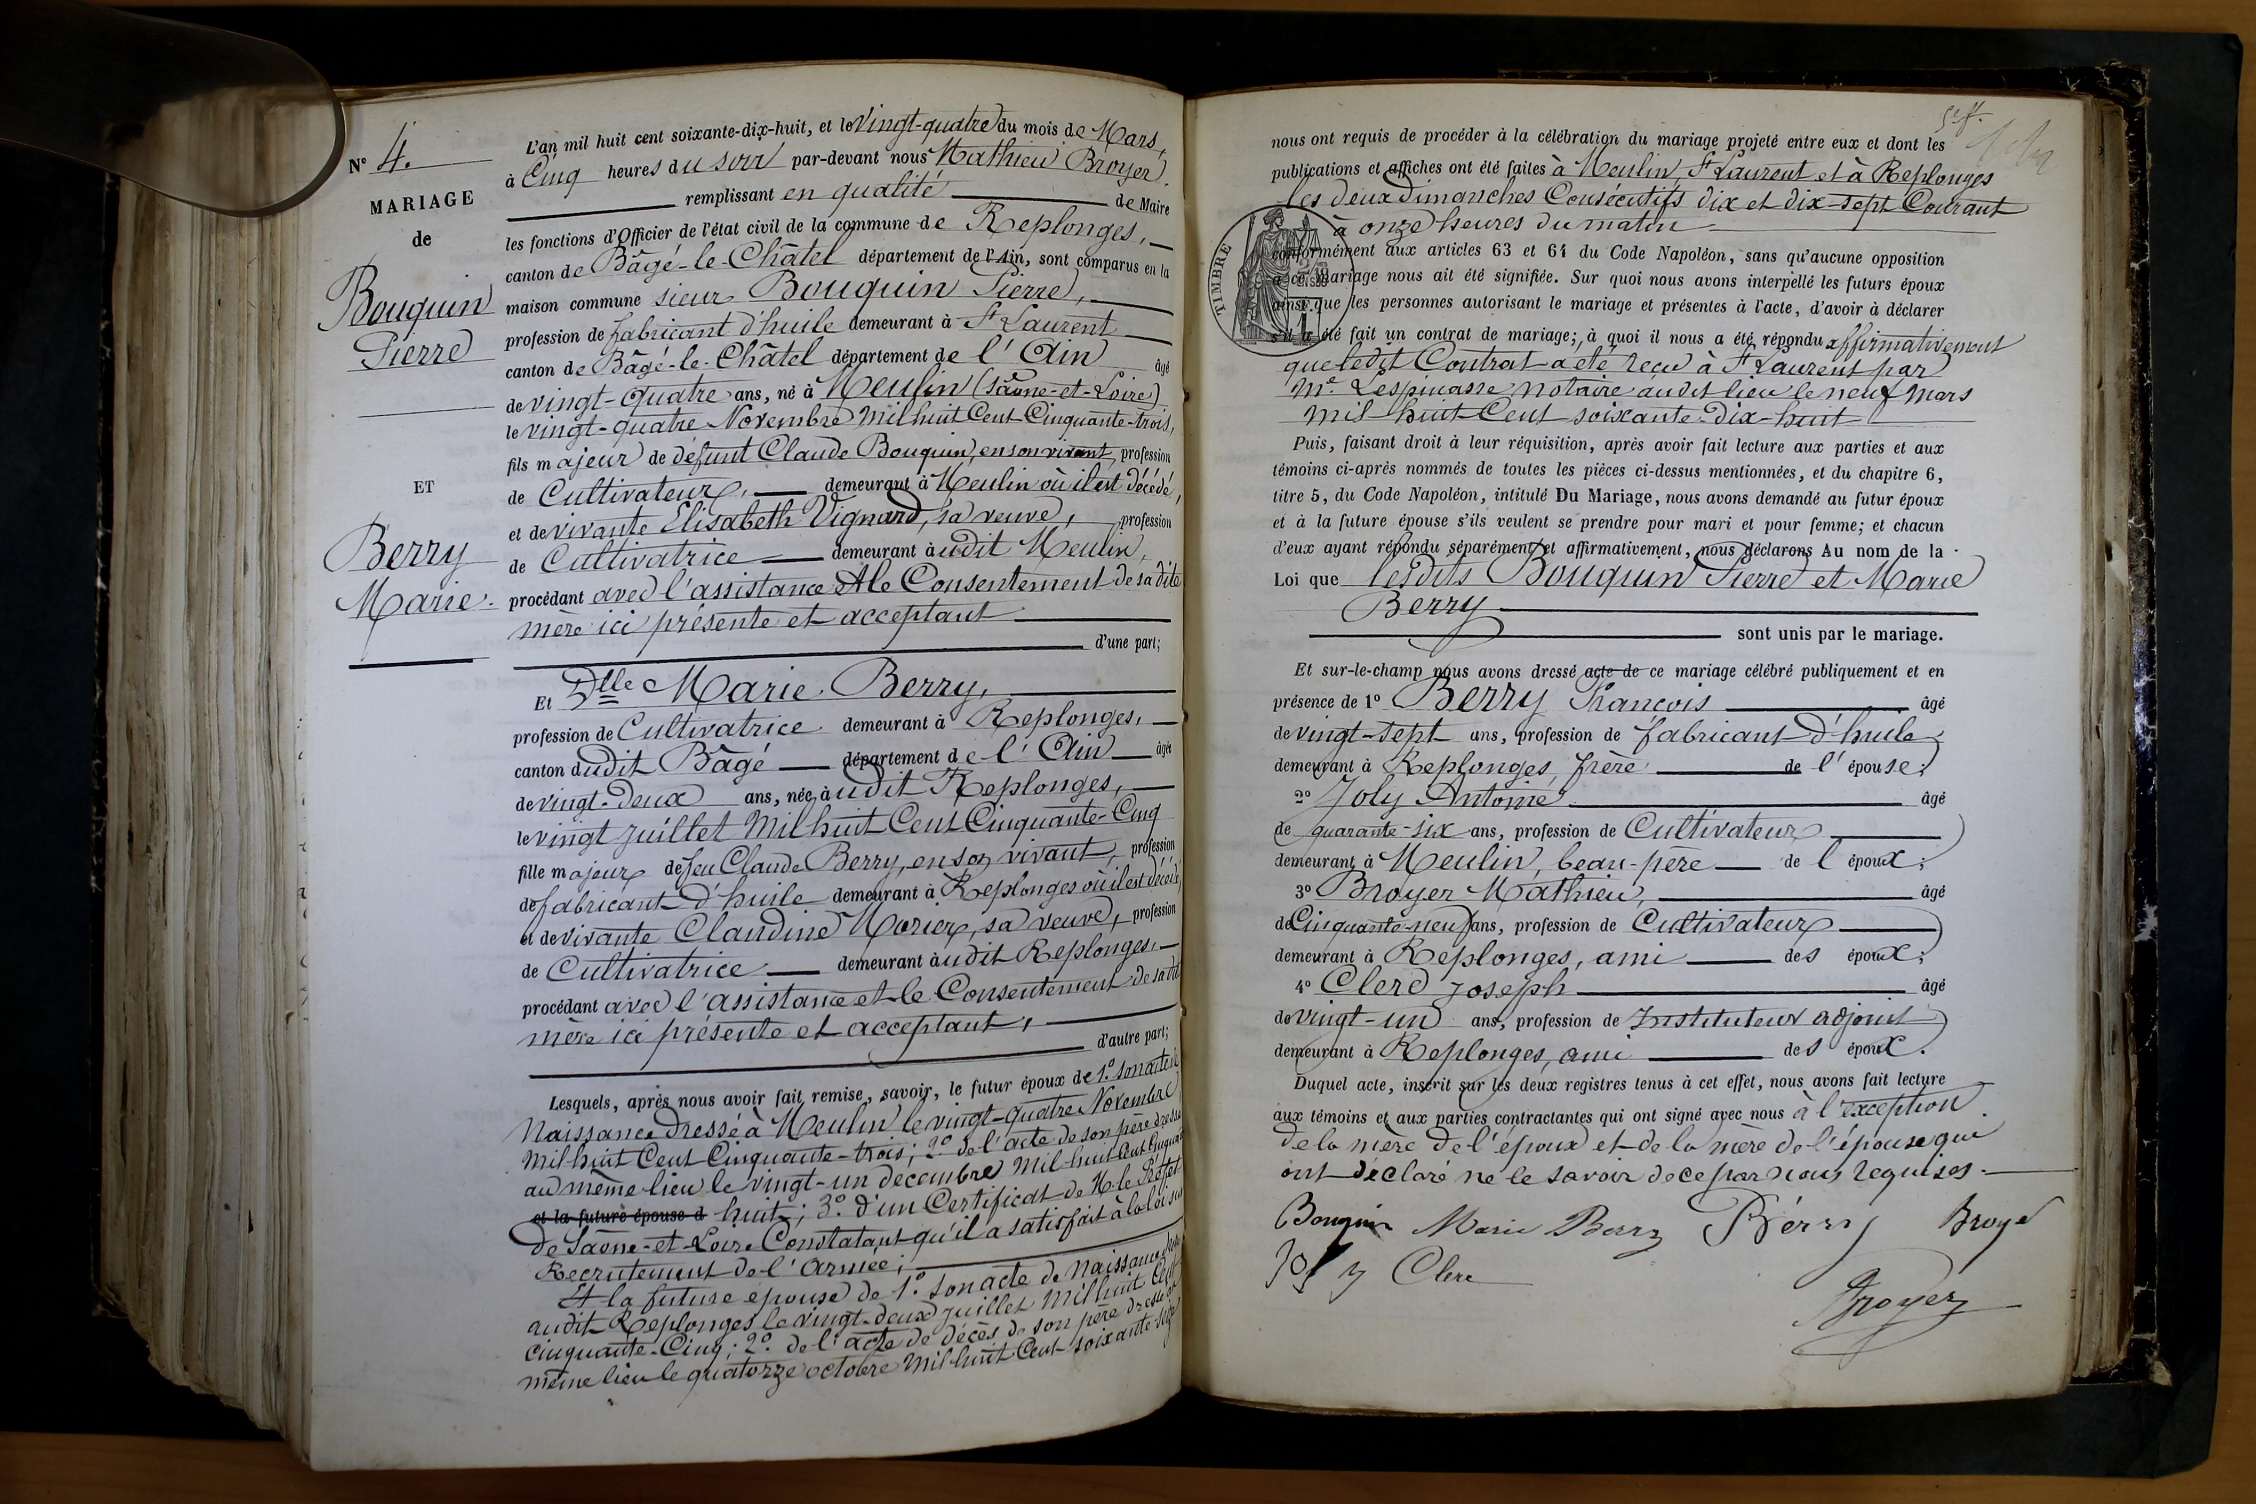 N° 4.
MARIAGE
de
Bouquin
Pierre
ET
Berry
Marie.
L'an mil huit cent soixante-dix-huit, et le vingt-quatre du mois de Mars,
à Cinq heures du soir par-devant nous Mathieu Broyer.
remplissant en qualité de Maire
les fonctions d'Officier de l'état civil de la commune de Replonges,
canton de Bâgé-le-Châtel département de l'Ain, sont comparus en la
maison commune sieur Bouquin Pierre,
profession de fabricant d'huile demeurant à St Laurent
canton de Bâgé-le-Châtel département de l'Ain âgé
de vingt-quatre ans, né à Meulin (Sâone-et-Loire)
le vingt-quatre Novembre Mil huit Cent Cinquante-trois,
fils majeur de défunt Claude Bouquin, en son vivant, profession
de Cultivateur, demeurant à Meulin où il est décédé,
et de vivante Elisabeth Vignard, sa veuve, profession
de Cultivatrice demeurant àudit Meulin,
procédant avec l'assistance et le Consentement de sa dite
mère ici présente et acceptant
d'une part;
Et Dlle Marie Berry,
profession de Cultivatrice demeurant à Replonges,
canton dudit Bâgé département de l'Ain âgée
de vingt-deux ans, née àudit Replonges,
le vingt juillet Mil huit Cent Cinquante-Cinq
fille majeur de feu Claude Berry, en son vivant, profession
de fabricant d'huile demeurant à Replonges où il est décédé,
et de vivante Claudine Morier, sa veuve, profession
de Cultivatrice demeurant àudit Replonges,
procédant avec l'assistance et le Consentement de sa dit
mère ici présente et acceptant,
d'autre part;
Lesquels, après nous avoir fait remise, savoir, le futur époux de 1° son acte de
Naissance dressé à Meulin le vingt-quatre Novembre
Mil huit Cent Cinquante-trois; 2° de l'acte de son père dressé
au même lieu le vingt-un décembre Mil-huit Cent Cinquante
et la future épouse d huit; 3° d'un Certificat de M. le Préfet
de Saône-et-Loire Constatant qu'il a satisfait à la loi sur
Recrutement de l'Armée;
Et la future épouse de 1° son acte de Naissance
audit Replonges le vingt-deux juillet Mil huit Cent
Cinquante-Cinq; 2° de l'acte de décès de son père dressé
même lieu le quatorze octobre Mil huit Cent soixante-sept
nous ont requis de procéder à la célébration du mariage projeté entre eux et dont les
publications et affiches ont été faites à Meulin, St Laurent et à Replonges
les deux Dimanches Consécutifs dix et dix-sept Courant
à onze heures du matin
TIMBRE
conformément aux articles 63 et 64 du Code Napoléon, sans qu'aucune opposition
à ce mariage nous ait été signifiée. Sur quoi nous avons interpellé les futurs époux
ainsi que les personnes autorisant le mariage et présentes à l'acte, d'avoir à déclarer
s'il a été fait un contrat de mariage; à quoi il nous a été répondu affirmativement
que ledit Contrat a été reçu à St Laurent par
Me Lespinasse Notaire audit lieu le neuf Mars
Mil huit Cent soixante-Dix-huit
Puis, faisant droit à leur réquisition, après avoir fait lecture aux parties et aux
témoins ci-après nommés de toutes les pièces ci-dessus mentionnées, et du chapitre 6,
titre 5, du Code Napoléon, intitulé Du Mariage, nous avons demandé au futur époux
et à la future épouse s'ils veulent se prendre pour mari et pour femme; et chacun
d'eux ayant répondu séparément et affirmativement, nous déclarons Au nom de la
Loi que lesdits Bouquin Pierre et Marie
Berry
sont unis par le mariage.
Et sur-le-champ nous avons dressé acte de ce mariage célébré publiquement et en
présence de 1° Berry François âgé
de vingt-sept ans, profession de fabricant d'huile
demeurant à Replonges, frère de l'épouse;
2° Joly Antoine âgé
de quarante-six ans, profession de Cultivateur
demeurant à Meulin, beau-père de l'époux;
3° Broyer Mathieu, âgé
de Cinquante-neuf ans, profession de Cultivateur
demeurant à Replonges, ami des époux;
4° Clerc Joseph âgé
de vingt-un ans, profession de Instituteur adjoint
demeurant à Replonges, ami des époux.
Duquel acte, inscrit sur les deux registres tenus à cet effet, nous avons fait lecture
aux témoins et aux parties contractantes qui ont signé avec nous à l'exception
de la mère de l'époux et de la mère de l'épouse que
ont déclaré ne le savoir de ce par nous requises.
Bouquin Marie Berry Bérry Broyé
Joly Clerc
Broyer